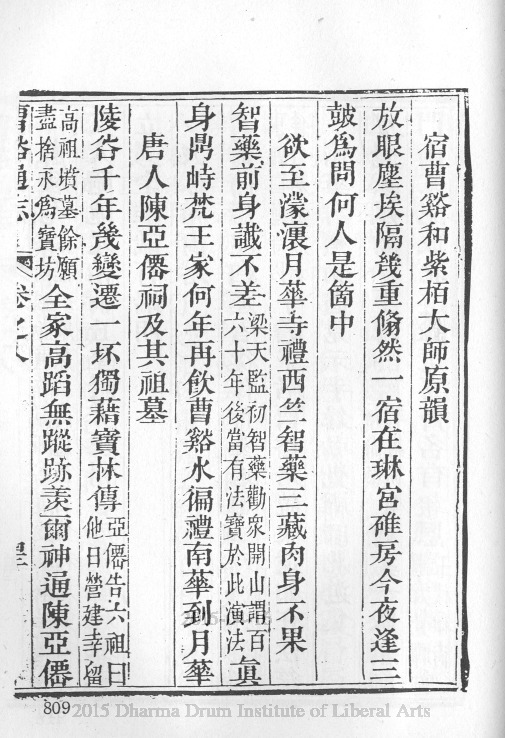 宿曹谿和紫栢大師原韻
放眼塵埃隔幾重翛然一宿在琳宮碓房今夜逢三
皷爲問何人是箇中
欲至濛瀼月華寺禮西竺智藥三藏肉身不果
智藥前身讖不差梁天監初智藥勸衆開山謂百六十年後當有法寶於此演法眞
身鼎峙梵王家何年再飮曹谿水徧禮南華到月華
唐人陳亞僊祠及其祖墓
陵谷千年幾變遷一抔獨藉寶林傳亞僊告六祖曰他日營建幸留
高祖墳墓餘願盡捨永爲寶坊全家高蹈無蹤跡羨爾神通陳亞僊
曹谿通志
卷之八
809
2015 Dharma Drum Institute of Liberal Arts